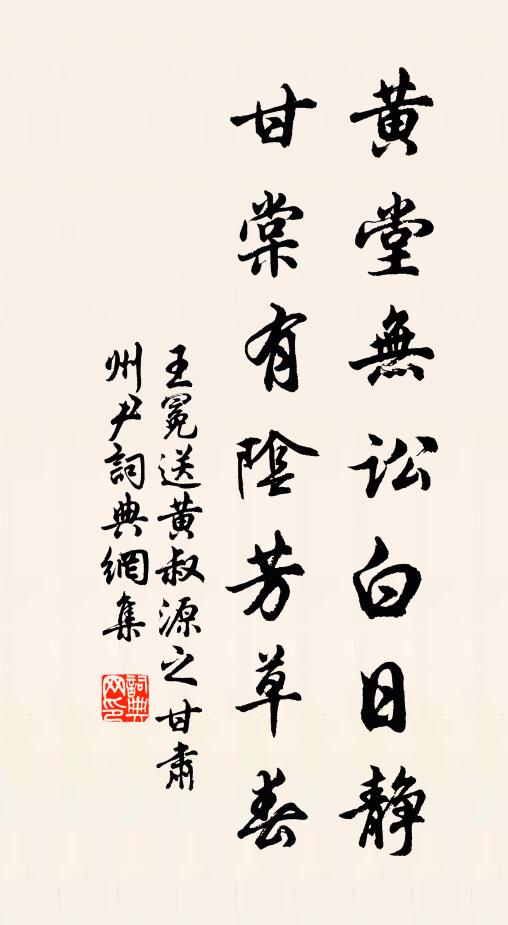 黄堂無訟白日静
甘棠有陰芳草春
王冕送黄叔源之甘肅
州尹詞典網集
詞典
网印